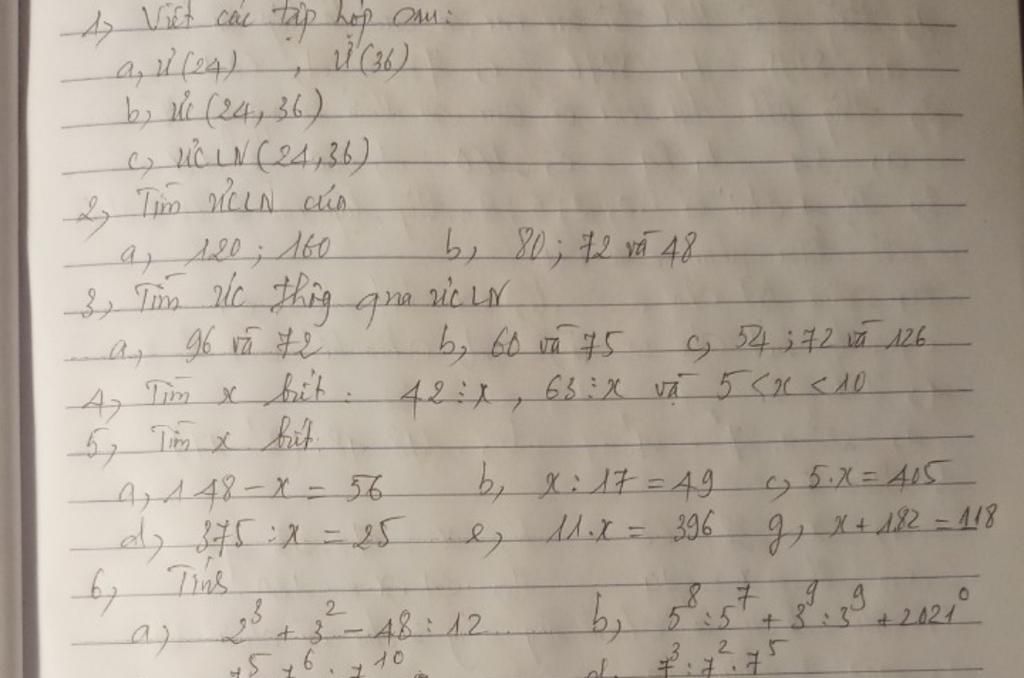 1, Viết các tập hợp sau:
a, Ư(24) , Ư(36)
b, ƯC(24, 36)
c, ƯCLN(24,36)
2, Tìm ƯCLN của
a, 120 ; 160 b, 80 ; 72 và 48
3, Tìm ƯC thôg qua ƯCLN
a, 96 và 72 b, 60 và 75 c, 54 ; 72 và 126
4, Tìm x biết : 42 ⋮ x , 63 ⋮ x và 5 < x < 10
5, Tìm x biết
a, 148 - x = 56 b, x : 17 = 49 c, 5.x = 405
d, 375 : x = 25 e, 11.x = 396 g, x + 182 = 118
6, Tính
a) 2³ + 3² - 48 : 12 b, 5⁸ : 5⁷ + 3⁹ : 3⁹ + 2021⁰
7⁶ . 7¹⁰ d. 7³ : 7² . 7⁵